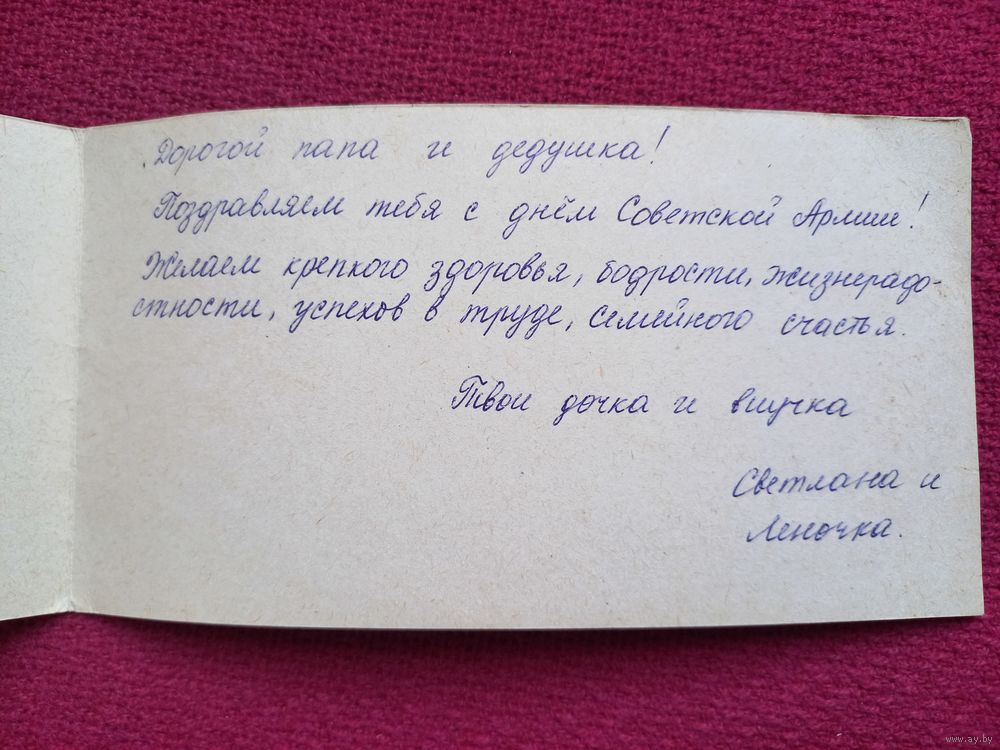 Дорогой папа и дедушка!
Поздравляем тебя с днём Советской Армии!
Желаем крепкого здоровья, бодрости, жизнерадо-
стности, успехов в труде, семейного счастья.
Твои дочка и внучка
Светлана и
Леночка.
www.ay.by